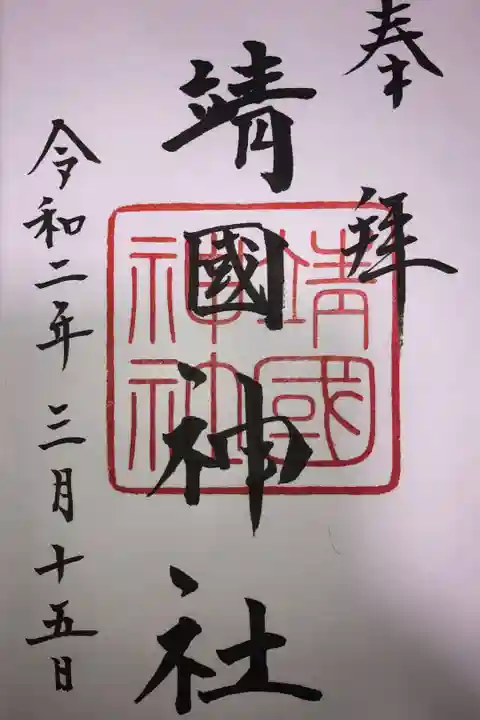 奉拝
靖國神社
靖國
神社
令和二年三月十五日